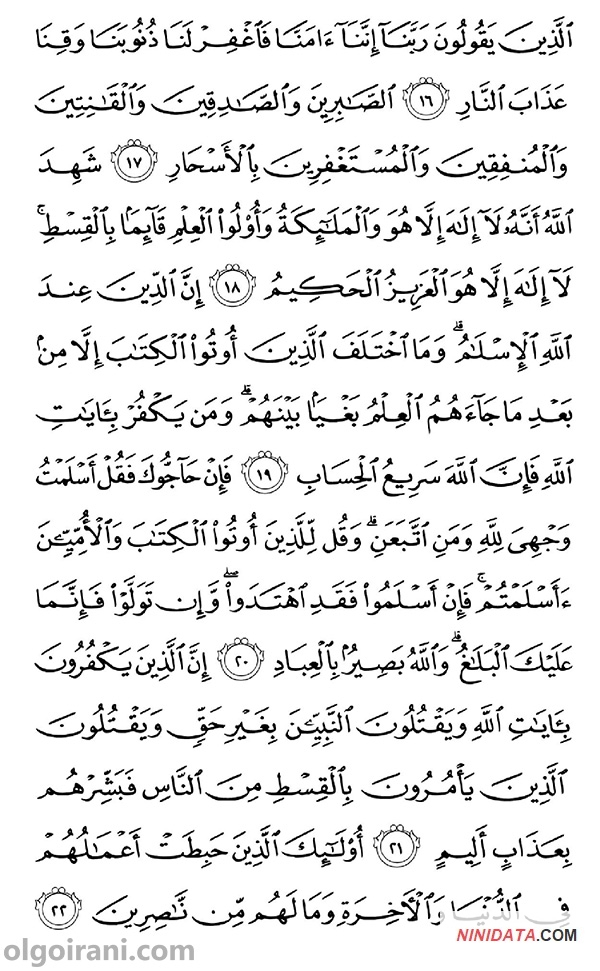 ٱلَّذِينَ يَقُولُونَ رَبَّنَآ إِنَّنَآ ءَامَنَّا فَٱغْفِرْ لَنَا ذُنُوبَنَا وَقِنَا
عَذَابَ ٱلنَّارِ ١٦ ٱلصَّٰبِرِينَ وَٱلصَّٰدِقِينَ وَٱلْقَٰنِتِينَ
وَٱلْمُنفِقِينَ وَٱلْمُسْتَغْفِرِينَ بِٱلْأَسْحَارِ ١٧ شَهِدَ
ٱللَّهُ أَنَّهُۥ لَآ إِلَٰهَ إِلَّا هُوَ وَٱلْمَلَٰٓئِكَةُ وَأُو۟لُوا۟ ٱلْعِلْمِ قَآئِمًۢا بِٱلْقِسْطِ ۚ
لَآ إِلَٰهَ إِلَّا هُوَ ٱلْعَزِيزُ ٱلْحَكِيمُ ١٨ إِنَّ ٱلدِّينَ عِندَ
ٱللَّهِ ٱلْإِسْلَٰمُ ۗ وَمَا ٱخْتَلَفَ ٱلَّذِينَ أُوتُوا۟ ٱلْكِتَٰبَ إِلَّا مِنۢ
بَعْدِ مَا جَآءَهُمُ ٱلْعِلْمُ بَغْيًۢا بَيْنَهُمْ ۗ وَمَن يَكْفُرْ بِـَٔايَٰتِ
ٱللَّهِ فَإِنَّ ٱللَّهَ سَرِيعُ ٱلْحِسَابِ ١٩ فَإِنْ حَآجُّوكَ فَقُلْ أَسْلَمْتُ
وَجْهِىَ لِلَّهِ وَمَنِ ٱتَّبَعَنِ ۗ وَقُل لِّلَّذِينَ أُوتُوا۟ ٱلْكِتَٰبَ وَٱلْأُمِّيِّـۧنَ
ءَأَسْلَمْتُمْ ۚ فَإِنْ أَسْلَمُوا۟ فَقَدِ ٱهْتَدَوا۟ ۖ وَّإِن تَوَلَّوْا۟ فَإِنَّمَا
عَلَيْكَ ٱلْبَلَٰغُ ۗ وَٱللَّهُ بَصِيرٌۢ بِٱلْعِبَادِ ٢٠ إِنَّ ٱلَّذِينَ يَكْفُرُونَ
بِـَٔايَٰتِ ٱللَّهِ وَيَقْتُلُونَ ٱلنَّبِيِّـۧنَ بِغَيْرِ حَقٍّ وَيَقْتُلُونَ
ٱلَّذِينَ يَأْمُرُونَ بِٱلْقِسْطِ مِنَ ٱلنَّاسِ فَبَشِّرْهُم
بِعَذَابٍ أَلِيمٍ ٢١ أُو۟لَٰٓئِكَ ٱلَّذِينَ حَبِطَتْ أَعْمَٰلُهُمْ
فِى ٱلدُّنْيَا وَٱلْءَاخِرَةِ وَمَا لَهُم مِّن نَّٰصِرِينَ ٢٢
NINIDATA.COM
olgoirani.com